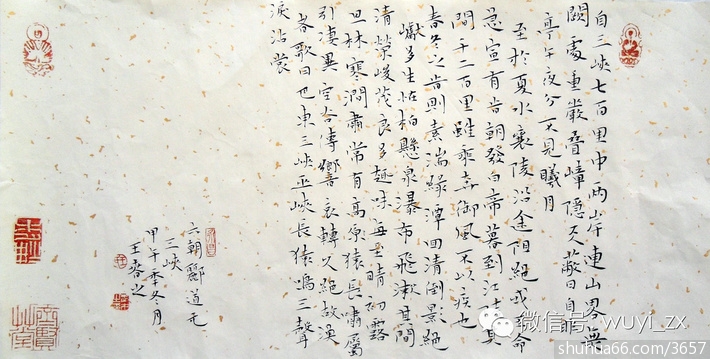 自三峽七百里中兩岸連山畧無
闕處重巖疊嶂隱天蔽日自非
亭午夜分不見曦月
至於夏水襄陵沿途阻絕或命
急宣有旹朝發白帝暮到江陵其
間千二百里雖乘奔御風不以疾也
春冬之旹則素湍綠潭回清倒影絕
巘多生怪柏懸泉瀑布飛漱其間
清榮峻茂良多趣味每至晴初霜
旦林寒澗肅常有高原猿長嘯屬
引淒異空谷傳響哀轉久絕故漁
者歌曰巴東三峽巫峽長猿鳴三聲
淚沾裳
六朝酈道元
三峽
甲午季冬月
微信号: wuyi_zx
shuhua66.com/3657